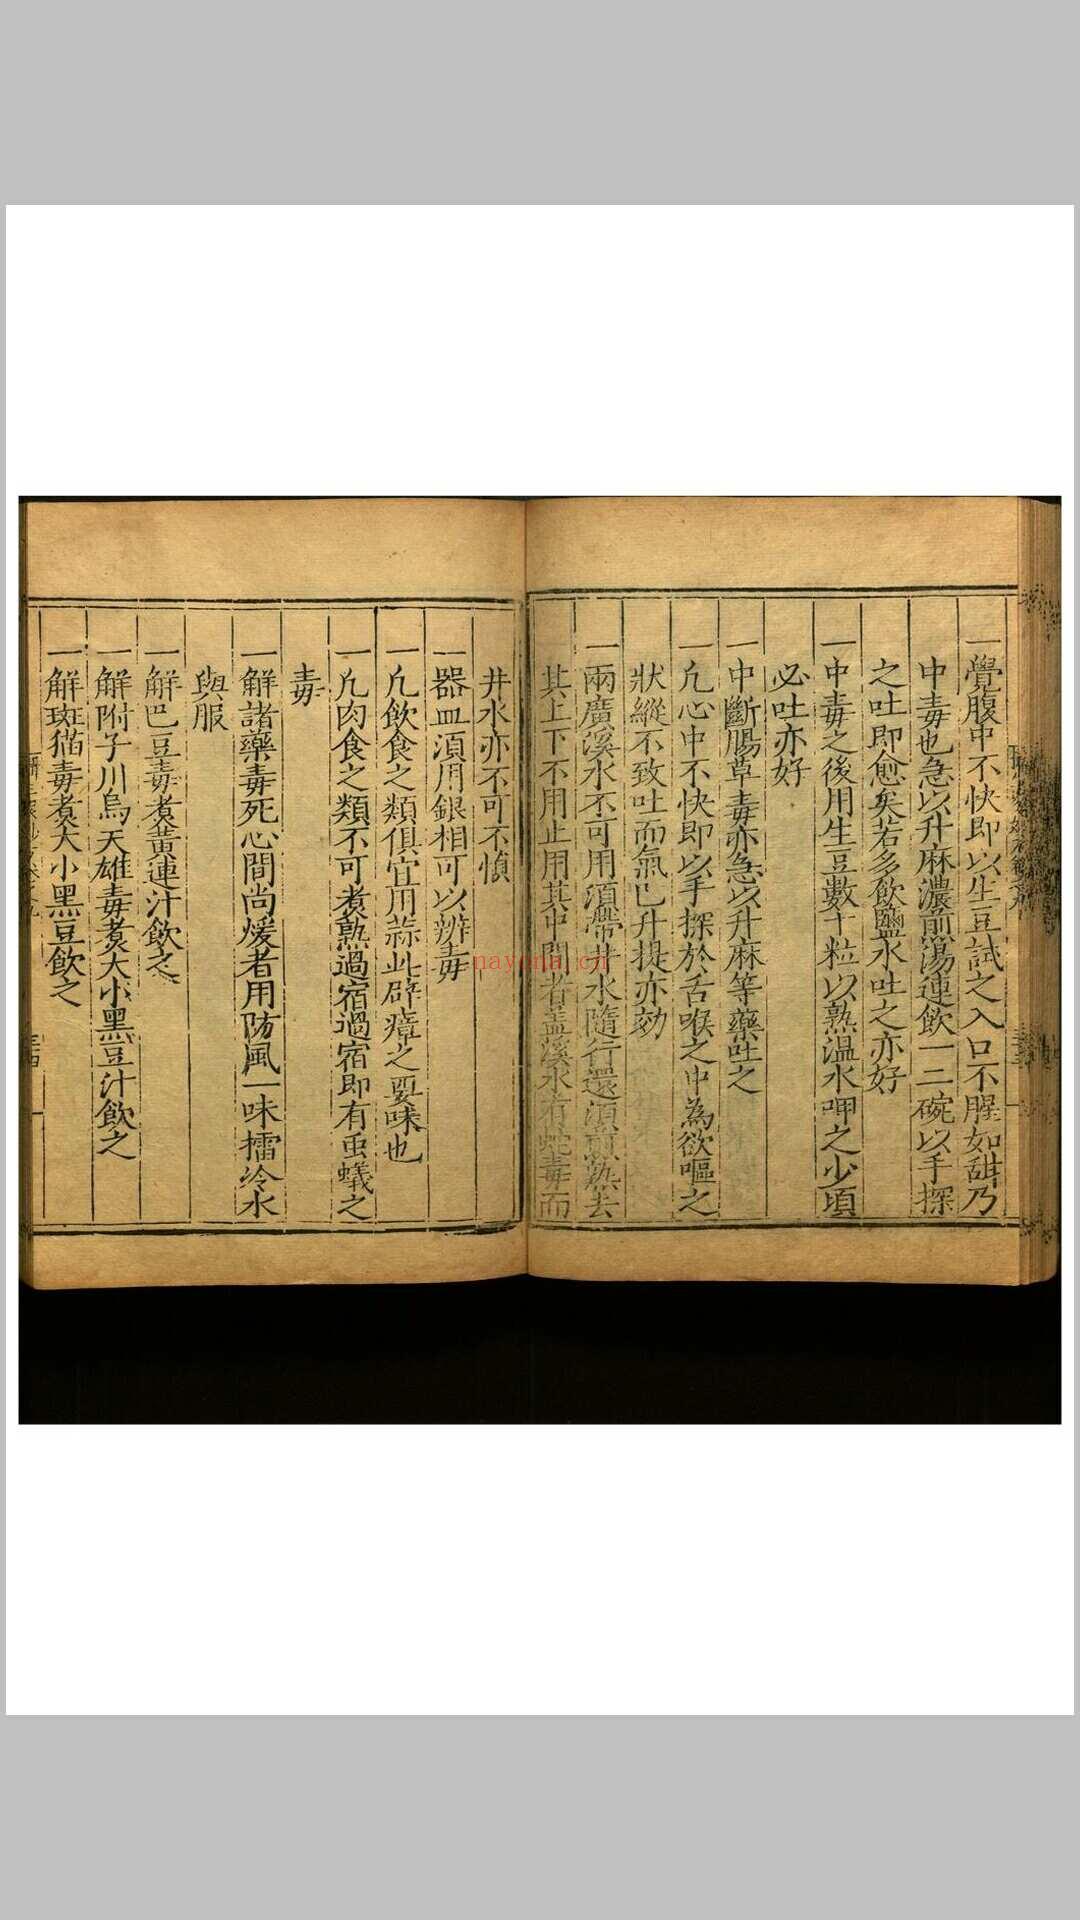 一覺腹中不快即以生豆試之入口不腥如甜乃
中毒也急以升麻濃煎湯連飲一二碗以手探
之吐即愈矣若多飲鹽水吐之亦好
一中毒之後用生豆數十粒以熟溫水呷之少頃
必吐亦好
一中斷腸草毒亦急以升麻等藥吐之
一凢心中不快即以手探於舌喉之中為欲嘔之
狀縱不致吐而氣已升提亦効
一兩廣溪水不可用須帶井水隨行還須煎熟去
其上下不用止用其中間者盖溪水有蛇毒而
井水亦不可不慎
一器皿須用銀相可以辨毒
一凢飲食之類俱宜用蒜此辟瘴之要味也
一凢肉食之類不可煮熟過宿過宿即有虫蟻之
毒
一解諸藥毒死心間尚煖者用防風一味擂冷水
與服
一解巴豆毒煮黃連汁飲之
一解附子川烏天雄毒煮大小黑豆汁飲之
一解斑猫毒煮大小黑豆飲之
nayona.cn